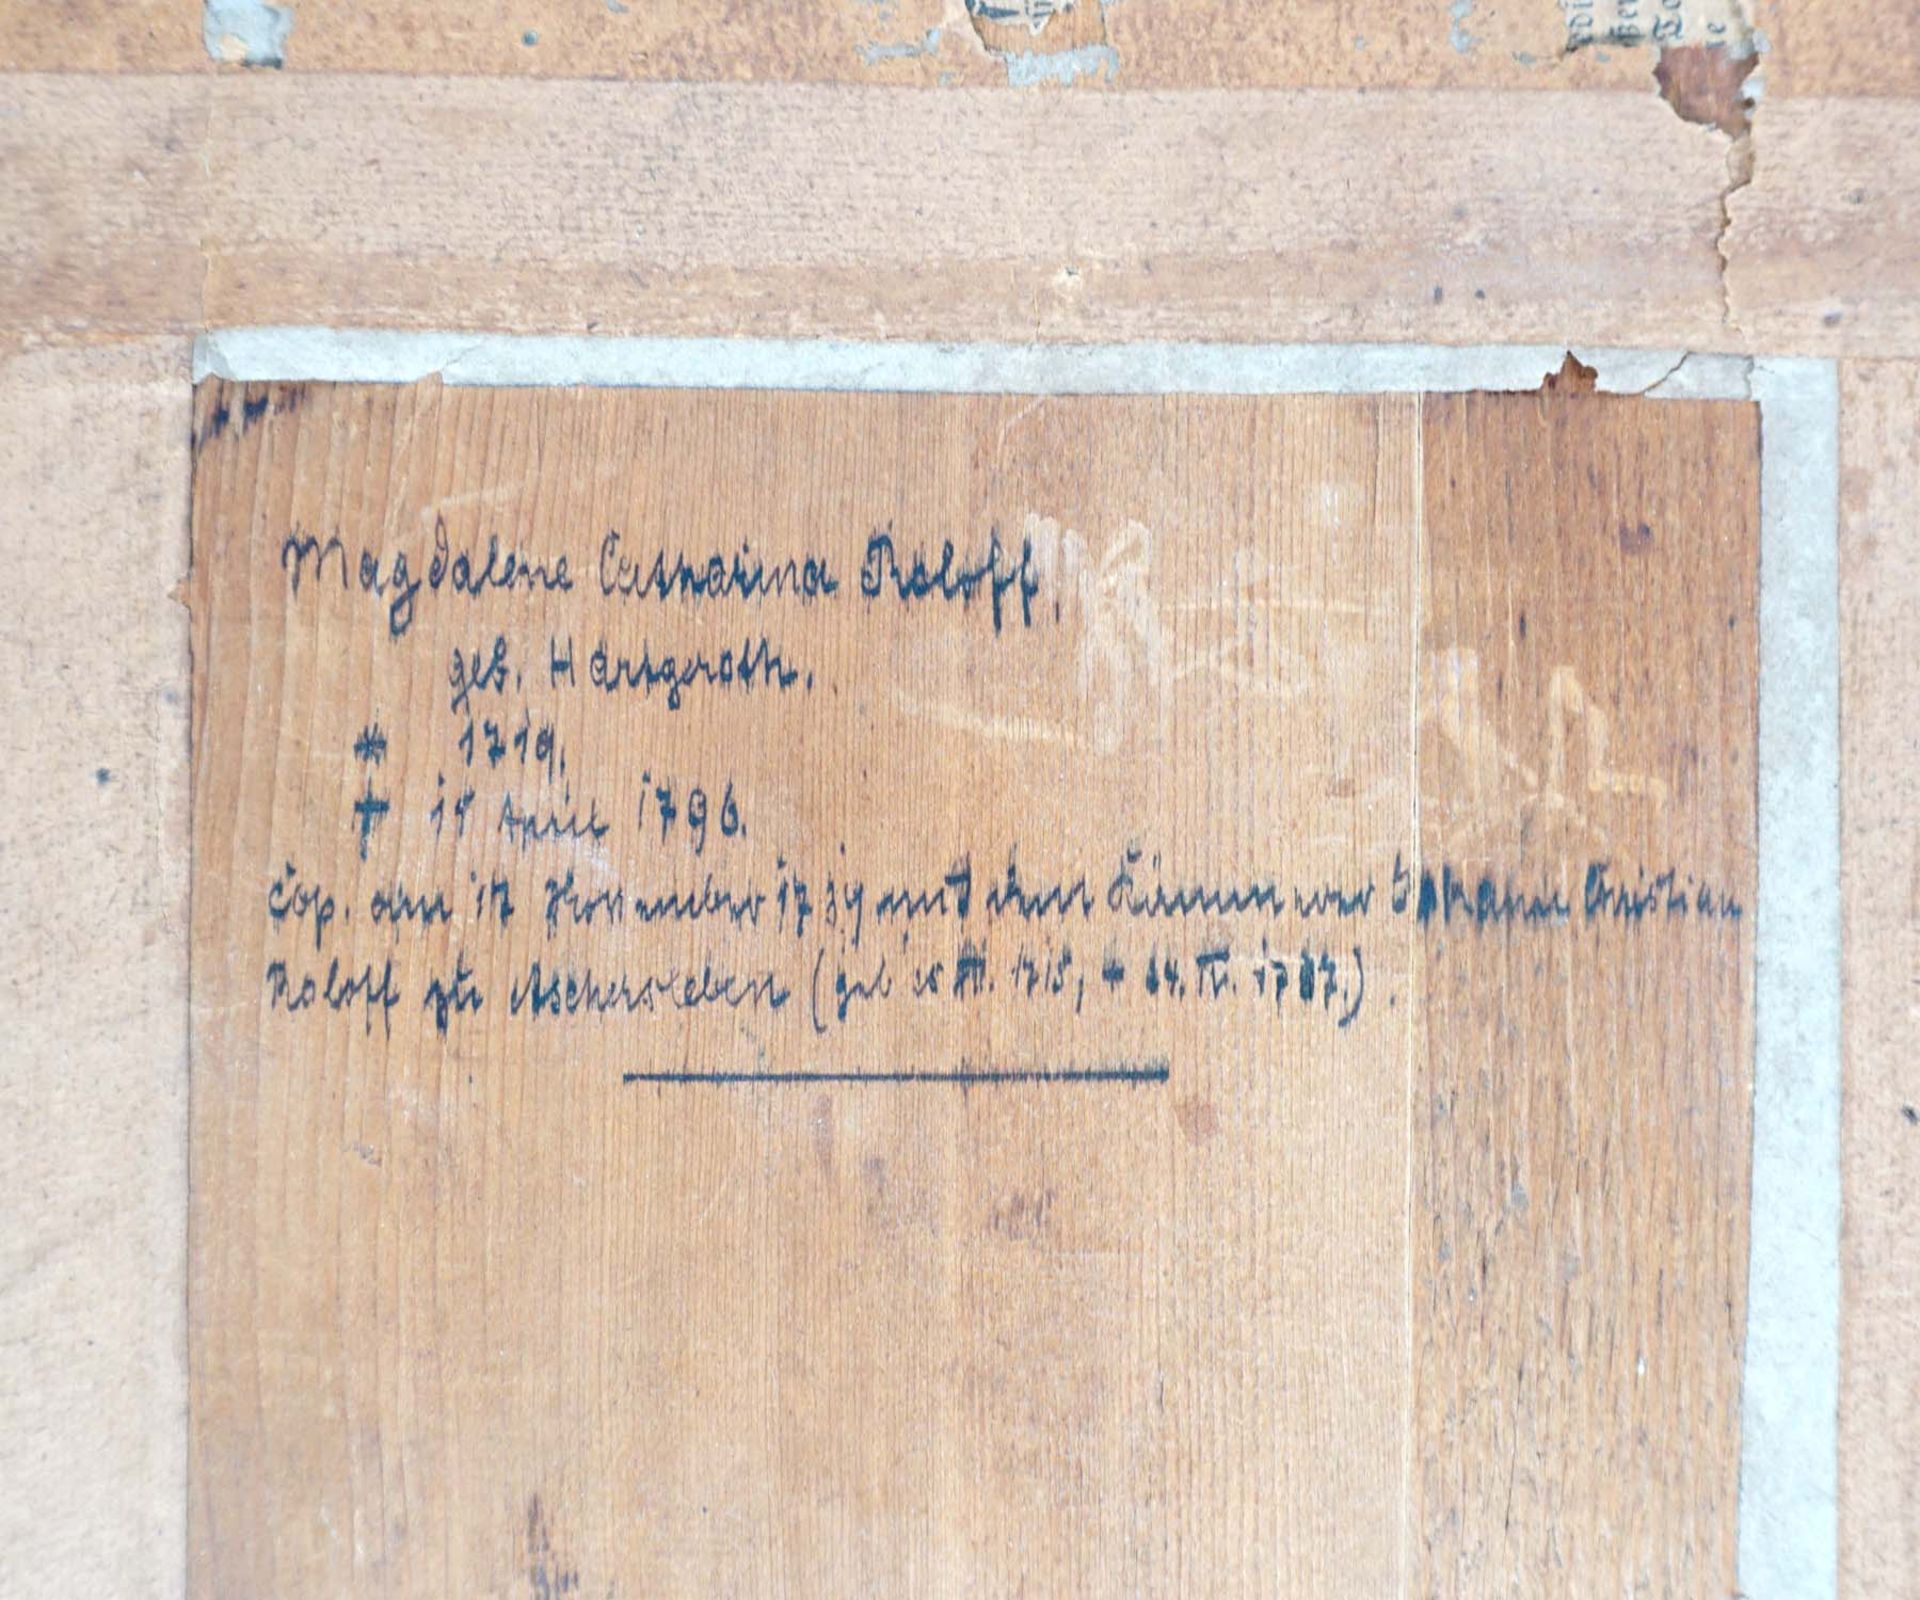 Magdalene Catharina Roloff,
geb. Hartgeroth.
* 1719.
† 15 April 1796.
Cop. am 17 November 1739 mit dem Kämmerer Johann Christian
Roloff zu Aschersleben (geb 1715, + 24. IV. 17 7.).